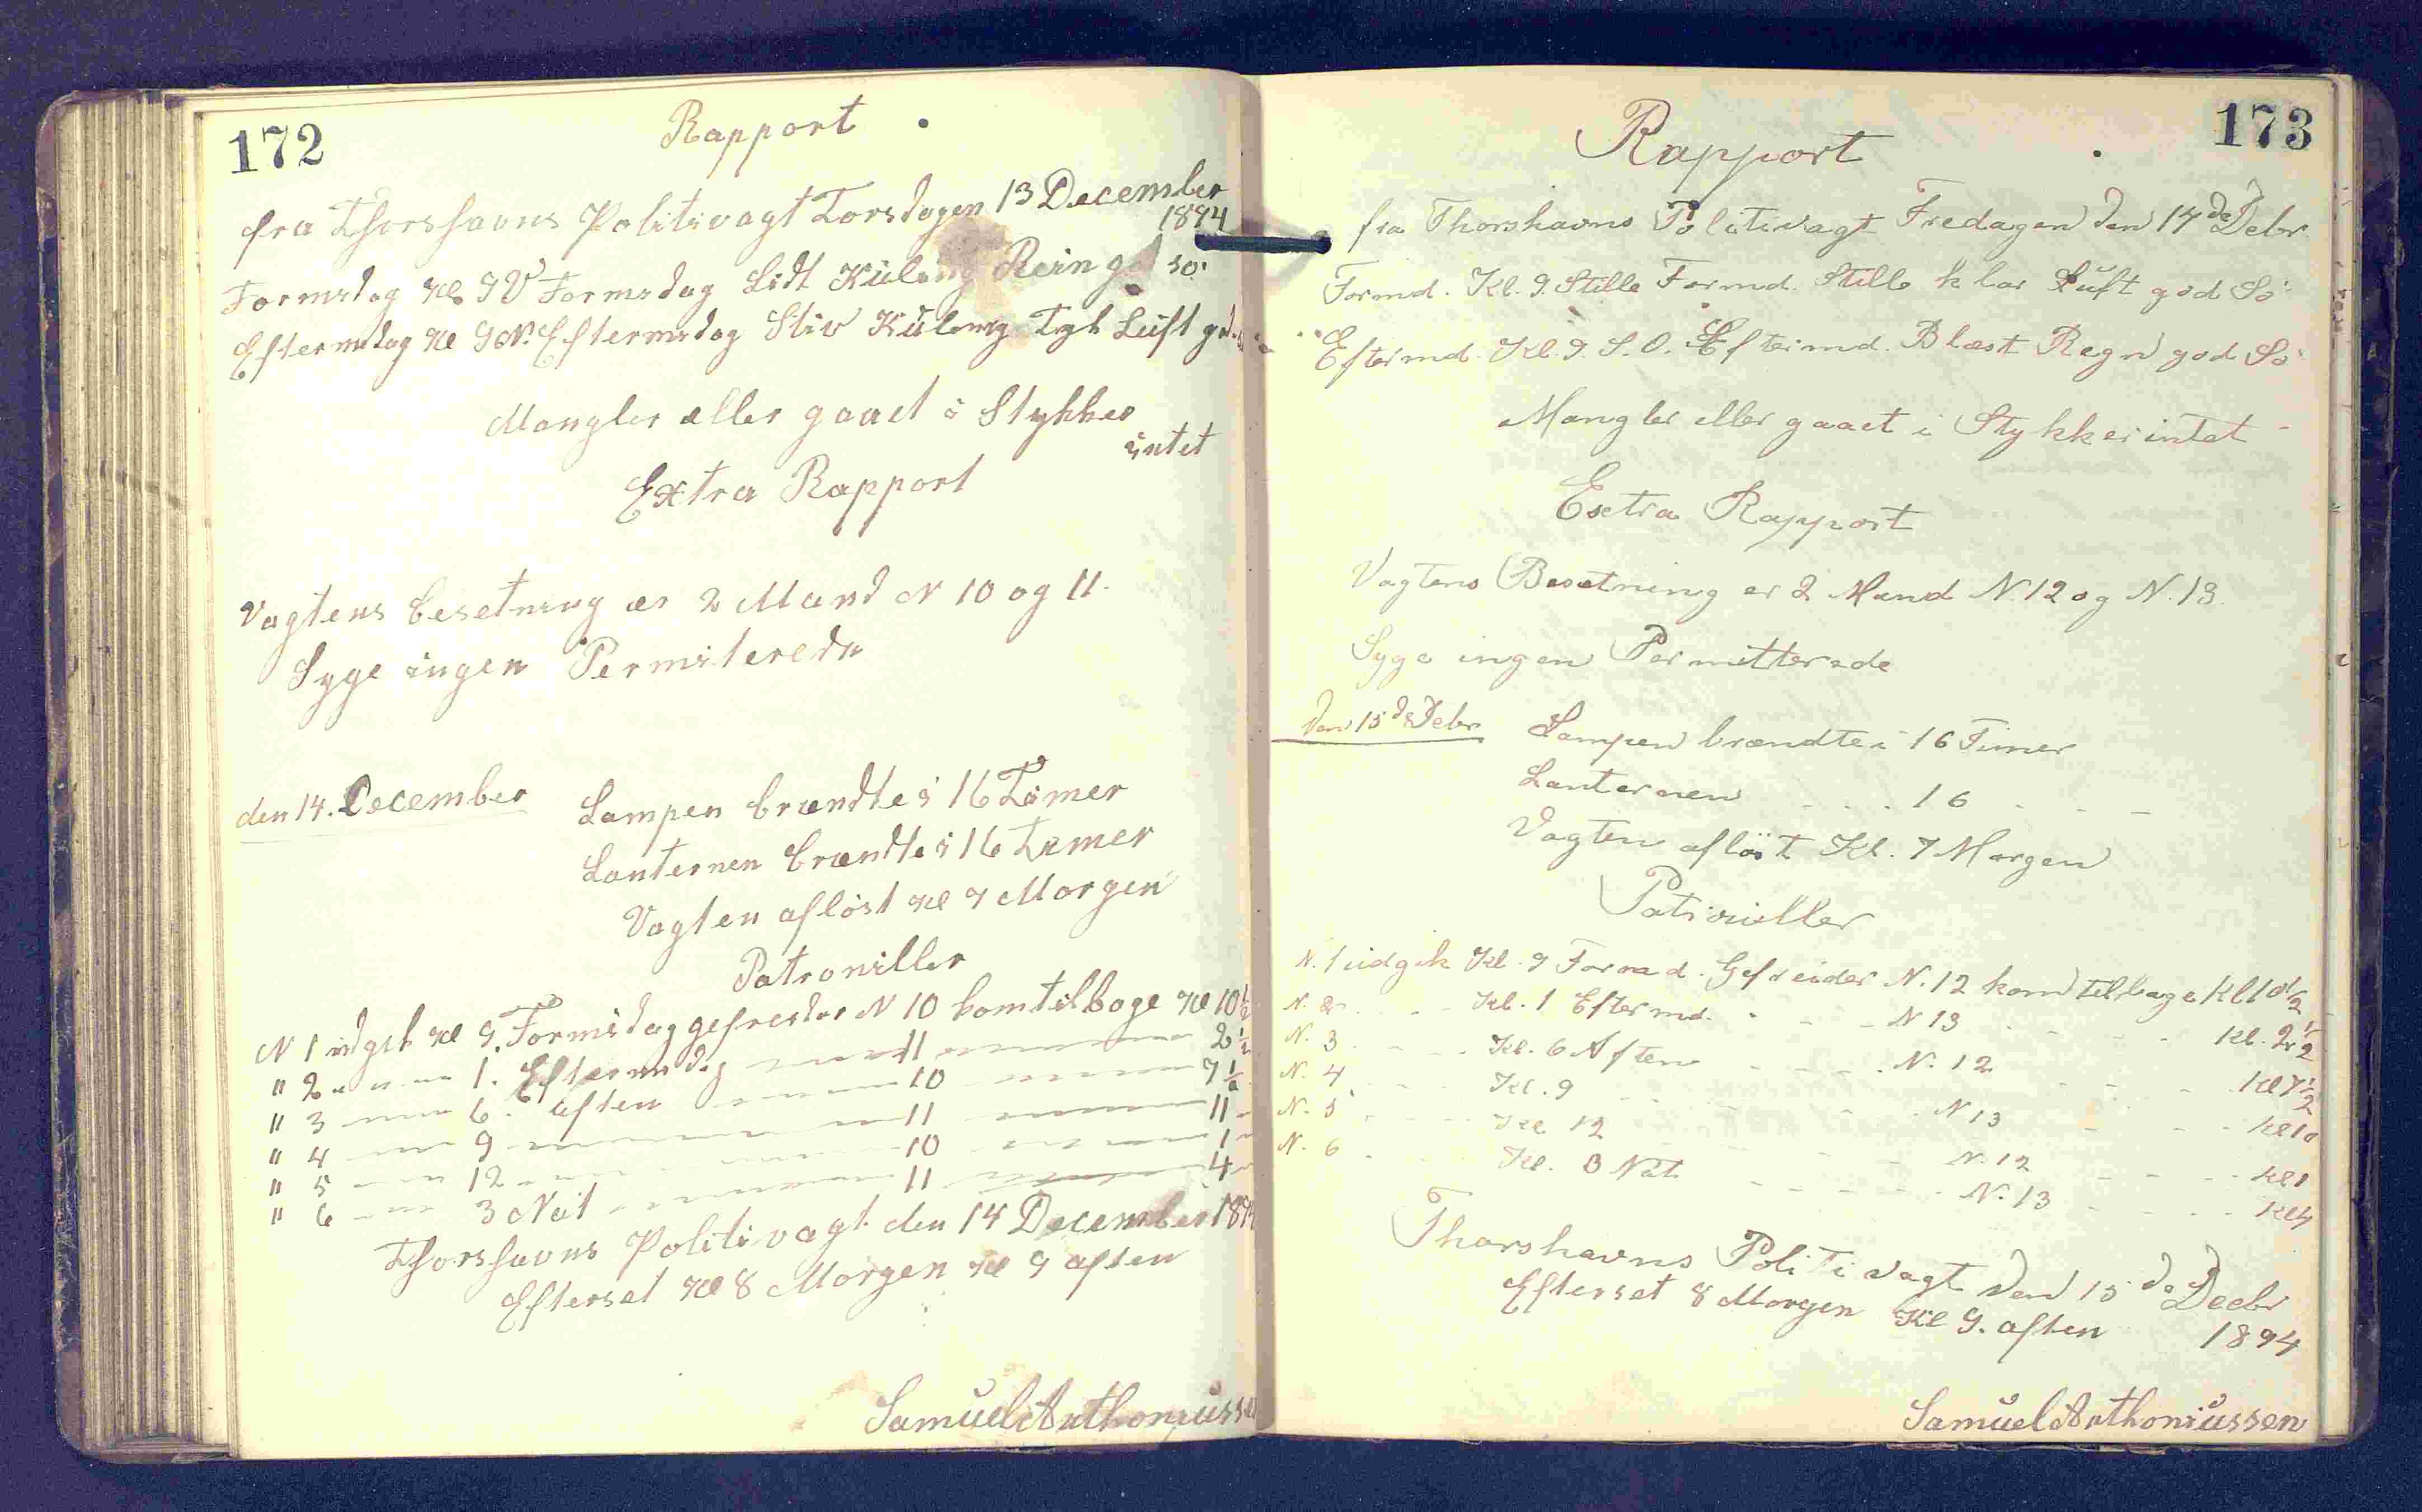 172
Rapport
fra Thorshavns Politivagt Torsdagen 13 December
1894
Formidag Kl 9 V Formidag Lidt Kuling Rein god Sö
Eftermidag Kl 9 N. Eftermidag Stiv Kuling Tyk Luft god
Mangler eller gaaet i Stykker
intet
Extra Rapport
Vagtens besetning er 2 Mand N 10 og 11.
Syge ingen Permiterede
den 14. December
Lampen brændte i 16 Timer
Lanternen brændte i 16 Timer
Vagten aflöst Kl 7 Morgen
Patroviller
N 1 udgik Kl 9. Formidag gefreider N 10 kom tilbage Kl 10½
" 2 1. Eftermidag 11 2½
" 3 6. aften 10 7½
" 4 9 11 11
" 5 12 10 1
" 6 3 Nat 11 4
Thorshavns Politivagt den 14 December 1894
Efterset Kl 8 Morgen Kl 9 aften
Samuel Anthoniussen
173
Rapport
fra Thorshavns Politivagt Fredagen den 14de Debr.
Formd. Kl. 9. Stille Formd. Stille klar Luft god Sö
Eftermd. Kl. 9. S.O. Eftermd. Blæst Regn god Sö
Mangler eller gaaet i Stykker intet
Extra Rapport
Vagtens Besetning er 2 Mand N. 12 og N. 13.
Syge ingen Permitterede
Den 15de Debr
Lampen brændte i 16 Timer
Lanternen - - - 16 - - -
Vagten aflöst Kl. 7 Morgen
Patrouiller
N. 1 udgik Kl. 9 Formd. Gefreider N. 12 kom tilbage Kl 10½
N. 2 - - - Kl. 1 Eftermd. - - - N 13 - - - Kl. 2½
N. 3 - - - Kl. 6 Aften - - - N. 12 - - - Kl 7½
N. 4 - - - Kl. 9 - - - N 13 - - - Kl 10
N. 5 - - - Kl 12 - - - N. 12 - - - Kl 1
N. 6 - - - Kl. 3 Nat - - - N. 13 - - - Kl 4
Thorshavns Politivagt Den 15de Decbr
1894
Efterset 8 Morgen Kl 9. aften
Samuel Anthoniussen